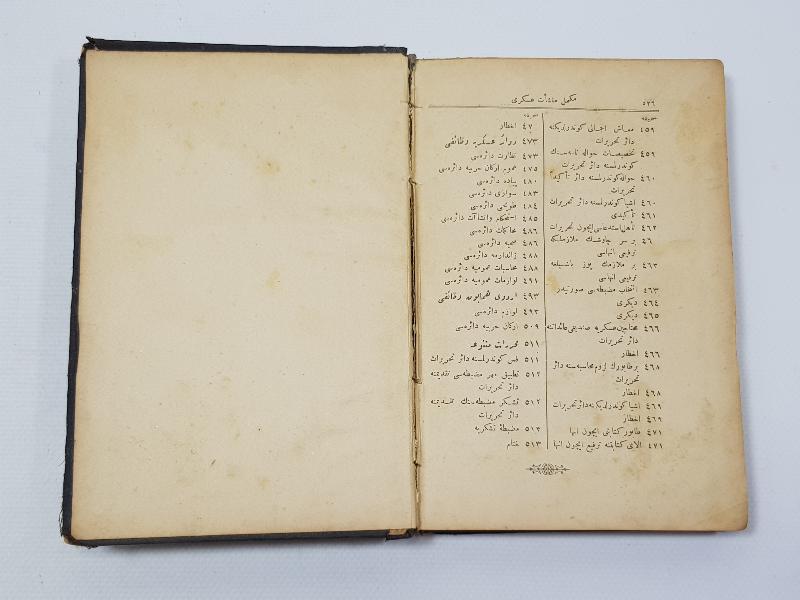 ٥٢٦
مكمل منشأت عسكرى
صحيفه
٤٥٩ معاش اجمالى كوندرلديكنه
دائر تحريرات
٤٥٩ تخصيصات حواله نامه سنك
كوندرلمسنه دائر تحريرات
٤٦٠ حواله كوندرلمسنه دائر تأكيداً
تحريرات
٤٦٠ اشيا كوندرلمسنه دائر تحريرات
٤٦١ تأكيدى
٤٦٢ تأهل استدعاسى ايچون تحريرات
٤٦ بر سر چاوشك ملازملكه
ترفيعى انهاسى
٤٦٣ بر ملازمك يوز باشيلغه
ترفيعى انهاسى
٤٦٣ انتخاب مضبطه سى صورتيدر
٤٦٤ ديكرى
٤٦٥ ديكرى
٤٦٦ محتاجين عسكريه صانديغى عائداتنه
دائر تحريرات
٤٦٦ اخطار
٤٦٨ بر طابورك لزوم محاسبه سنه دائر
تحريرات
٤٦٨ اخطار
٤٦٩ اشيا كوندرلديكنه دائر تحريرات
٤٦٩ اخطار
٤٧١ طابور كتابتى ايچون انها
٤٧١ الاى كتابتنه ترفيع ايچون انها
صحيفه
٤٧ اخطار
٤٧٣ دوائر عسكريه وظائفى
٤٧٣ نظارت دائره سى
٤٧٥ عموم اركان حربيه دائره سى
٤٨٠ پياده دائره سى
٤٨٣ سوارى دائره سى
٤٨٤ طوپجى دائره سى
٤٨٥ استحكام وانشاآت دائره سى
٤٨٦ محاكمات دائره سى
٤٨٦ صحيه دائره سى
٤٨٨ ژاندارمه دائره سى
٤٨٨ محاسبات عموميه دائره سى
٤٩١ لوازمات عموميه دائره سى
٤٩٣ اردوى همايون وظائفى
٤٩٣ لوازم دائره سى
٥٠٩ اركان حربيه دائره سى
٥١١ محررات متنوعه
٥١١ فس كوندرلمسنه دائر تحريرات
٥١٢ تطبيق مهر مضبطه سى تقديمنه
دائر تحريرات
٥١٢ تشكر مضبطه سنك تقديمنه
دائر تحريرات
٥١٣ مضبطۀ تشكريه
٥١٣ ختام